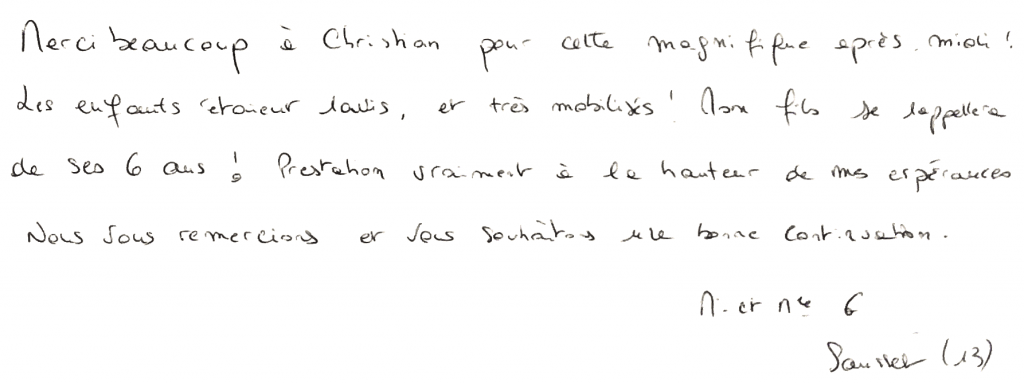 Merci beaucoup à Christian pour cette magnifique après-midi !
Les enfants étaient ravis, et très mobilisés ! Mon fils se rappellera
de ses 6 ans ! Prestation vraiment à la hauteur de mes espérances
Nous vous remercions et vous souhaitons une bonne continuation.
M. et Mme G
Sausset (13)